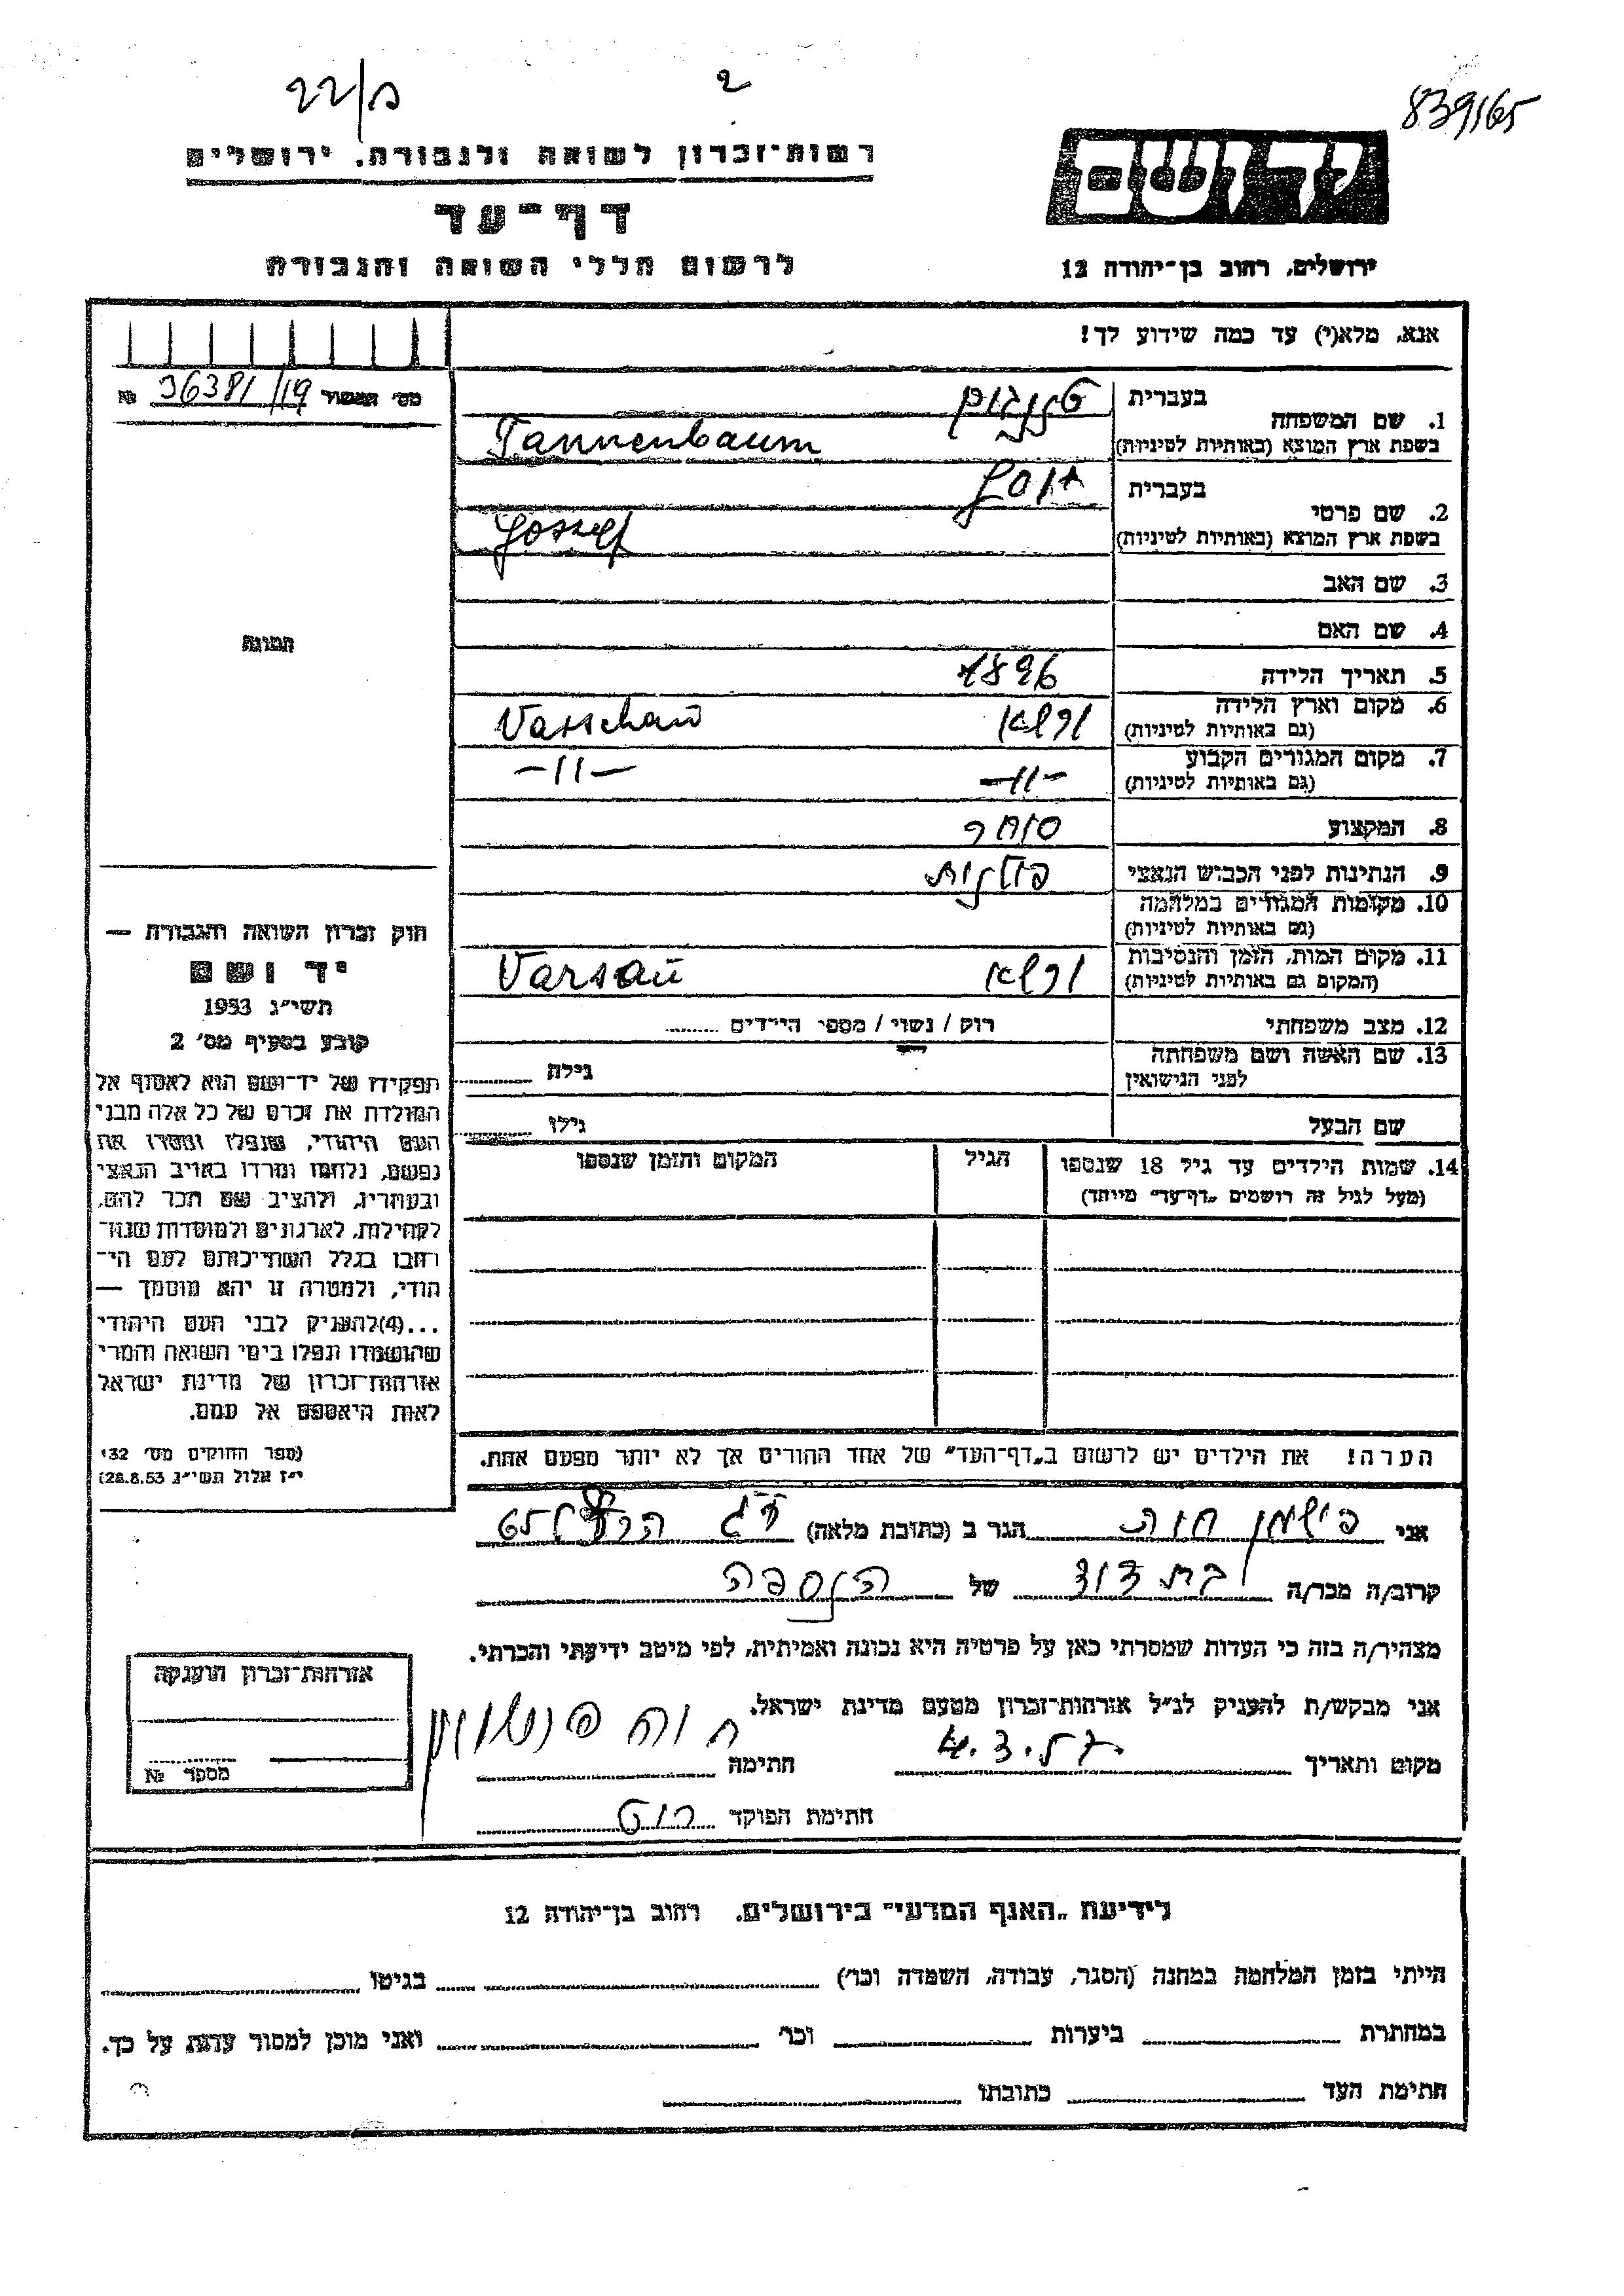 22/ת
2
839/165
רשות-זכרון לשואה ולגבורה, ירושלים
דף-עד
לרשום חללי השואה והגבורה
יד ושם
ירושלים, רחוב בן-יהודה 12
אנא, מלא(י) עד כמה שידוע לך!
מס' תאשור 36381/19 №
1. שם המשפחה בעברית טננבום
בשפת ארץ המוצא (באותיות לטיניות) Tannenbaum
2. שם פרטי בעברית יוסף
בשפת ארץ המוצא (באותיות לטיניות) Jossef
3. שם האב
4. שם האם
5. תאריך הלידה 1896
6. מקום וארץ הלידה (גם באותיות לטיניות) ורשא Varschaŭ
7. מקום המגורים הקבוע (גם באותיות לטיניות) -11- -11-
8. המקצוע סוחר
9. הנתינות לפני הכבוש הנאצי פולנית
10. מקומות המגורים במלחמה (גם באותיות לטיניות)
11. מקום המות, הזמן והנסיבות (המקום גם באותיות לטיניות) ורשא Varsaŭ
12. מצב משפחתי רוק / נשוי / מספר הילדים
13. שם האשה ושם משפחתה לפני הנישואין גילה
שם הבעל גילו
14. שמות הילדים עד גיל 18 שנספו הגיל המקום והזמן שנספו
(מעל לגיל זה רושמים "דף-עד" מיוחד)
הערה! את הילדים יש לרשום ב"דף-העד" של אחד ההורים אך לא יותר מפעם אחת.
תמונה
חוק זכרון השואה והגבורה —
יד ושם
תשי"ג 1953
קובע בסעיף מס' 2
תפקידו של יד-ושם הוא לאסוף אל
המולדת את זכרם של כל אלה מבני
העם היהודי, שנפלו ומסרו את
נפשם, נלחמו ומרדו באויב הנאצי
ובעוזריו, ולהציב שם וזכר להם,
לקהילות, לארגונים ולמוסדות שנח-
רבו בגלל השתייכותם לעם הי-
הודי, ולמטרה זו יהא מוסמך —
...(4)להעניק לבני העם היהודי
שהושמדו ונפלו בימי השואה והמרי
אזרחות-זכרון של מדינת ישראל
לאות היאספם אל עמם.
(ספר החוקים מס' 132
י"ז אלול תשי"ג 28.8.53)
אני פישמן חוה הגר ב (כתובת מלאה)
קרוב/ה מכר/ה בת דוד של הנספה
מצהיר/ה בזה כי העדות שמסרתי כאן על פרטיה היא נכונה ואמיתית, לפי מיטב ידיעתי והכרתי.
אני מבקש/ת להעניק לנ"ל אזרחות-זכרון מטעם מדינת ישראל.
מקום ותאריך 4.3.57 חתימה חוה פישמן
חתימת הפוקד
אזרחות-זכרון הוענקה
מספר №
לידיעת "האגף המדעי" בירושלים, רחוב בן-יהודה 12
הייתי בזמן המלחמה במחנה (הסגר, עבודה, השמדה וכו') בגיטו
במחתרת ביערות וכו' ואני מוכן למסור עדות על כך.
חתימת העד כתובתו